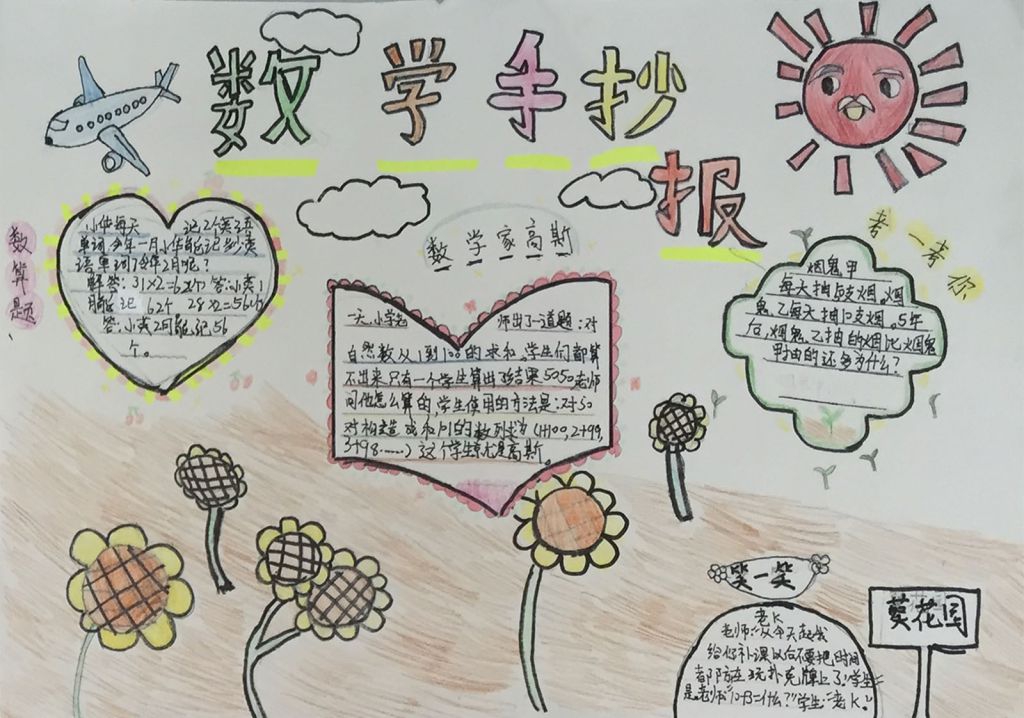 数学手抄
报
数学家高斯
数算题
考一考你
小华每天 记2个英语
单词,今年一月小华能记多少英
语单词?今年2月呢?
解答:31×2=62个 答:小英1
月能记 62个 28×2=56个
答:小英2月能记56
个。
一天,小学老 师出了一道题:对
自然数从1到100的求和,学生们都算
不出来.只有一个学生算出了结果5050,老师
问他怎么算的,学生使用的方法是:对50
对构造成和101的数列为(1+100,2+99,
3+98……)这个学生就是高斯。
烟鬼甲
每天抽5支烟,烟
鬼乙每天抽10支烟。5年
后,烟鬼乙抽的烟比烟鬼
甲抽的还多为什么?
笑一笑
葵花园
老K
老师:"从今天起我
给你补课以后不要把时间
都放在玩扑克牌上了!学生:
是老师"10+3=什么?"学生:"老K。"